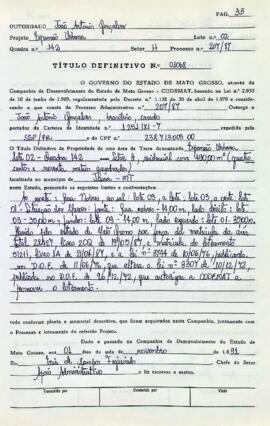 PAG. 33
OUTORGADO João Antônio Gonçalves
Projeto Expansão Urbana Lote 02
Quadra nº 142 Setor H Processo nº 207/87
TÍTULO DEFINITIVO Nº 01068
O GOVERNO DO ESTADO DE MATO GROSSO, através da
Companhia de Desenvolvimento do Estado de Mato Grosso - CODEMAT, baseado na Lei nº 2.035
de 10 de junho de 1.969, regulamentada pelo Decreto nº 1.138 de 30 de abril de 1.970 e conside-
rando o que consta do Processo Administrativo nº 207/87 Outorga a
João Antônio Gonçalves brasileiro, casado
portador da Carteira de Identidade nº
SSP/PR. e do CPF 238.713.009-00
O Título Definitivo de Propriedade de uma Área de Terra denominada Expansão Urbana,
lote 02 - Quadra 142 Setor H, residencial com 420,00 m² (quatro
centos e metros quadrados)
localizada no município de - MT
neste Estado, possuindo os seguintes limites e confrontações:
Ao norte: Rua ao sul: lote 03, a leste: lote 03, a oeste: lote
01. Situação dos - frente: Rua - 14,00 m, lado direito: lote
03 - 30,00 m, fundo: lote 03 - 14,00 m, lado esquerdo: lote 01 - 30,00 m.
do estado de Mato Grosso por força da matrícula
livro 2CQ de 19/05/87, e matrícula do loteamento
livro de 21/06/87, e a lei nº de 11/06/76, publicada
no D.O.E. de 11/06/76, que altera a lei nº 3307 de 10/12/72,
publicada no D.O.E. de 26/12/72, que autoriza a CODEMAT a
promover o loteamento.
tudo conforme planta e memorial descritivo, que ficam arquivados nesta Companhia, juntamente com
o Processo e loteamento do referido Projeto.
Dado e passado na Companhia de Desenvolvimento do Estado de
Mato Grosso, aos 01 dias do mês de novembro de 1.991
Eu de Campos Figueiredo Chefe do Setor
Apoio Administrativo o fiz escrever e assino.
Transcrito por Conferido por Visto